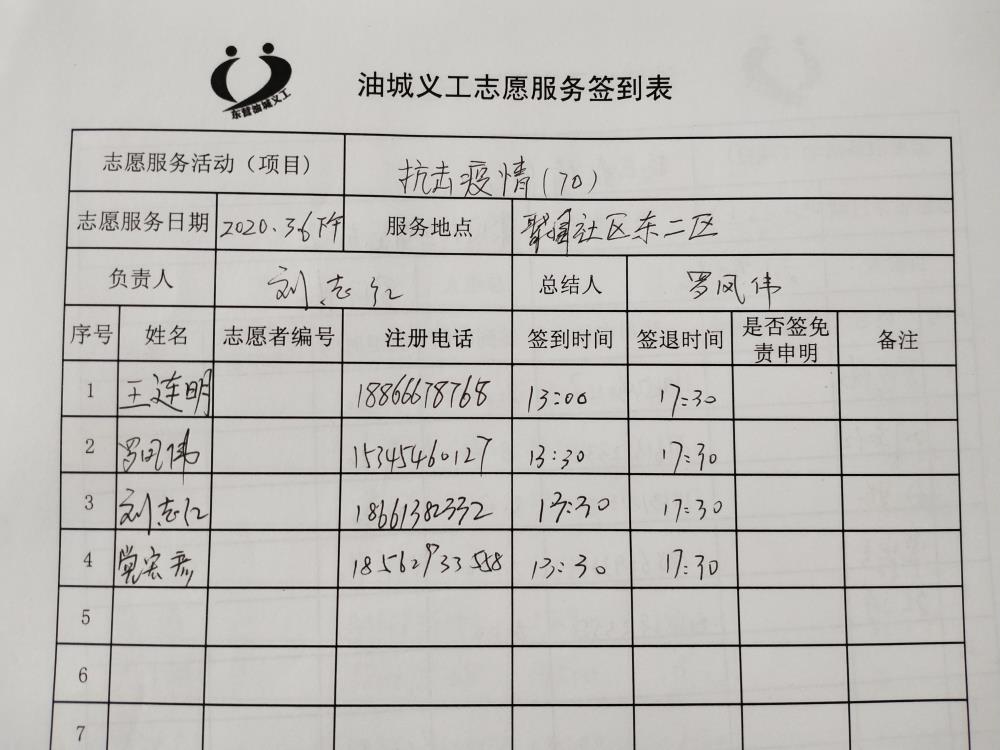 东营油城义工
油城义工志愿服务签到表
志愿服务活动（项目） 抗击疫情(70)
志愿服务日期 2020.3.6下午 服务地点 聚园社区东二区
负责人 刘志红 总结人 罗凤伟
序号 姓名 志愿者编号 注册电话 签到时间 签退时间 是否签免责申明 备注
1 王连明 18866678768 13:00 17:30
2 罗凤伟 15345460127 13:30 17:30
3 刘志红 18661382332 13:30 17:30
4 党宏彦 18562933588 13:30 17:30
5
6
7